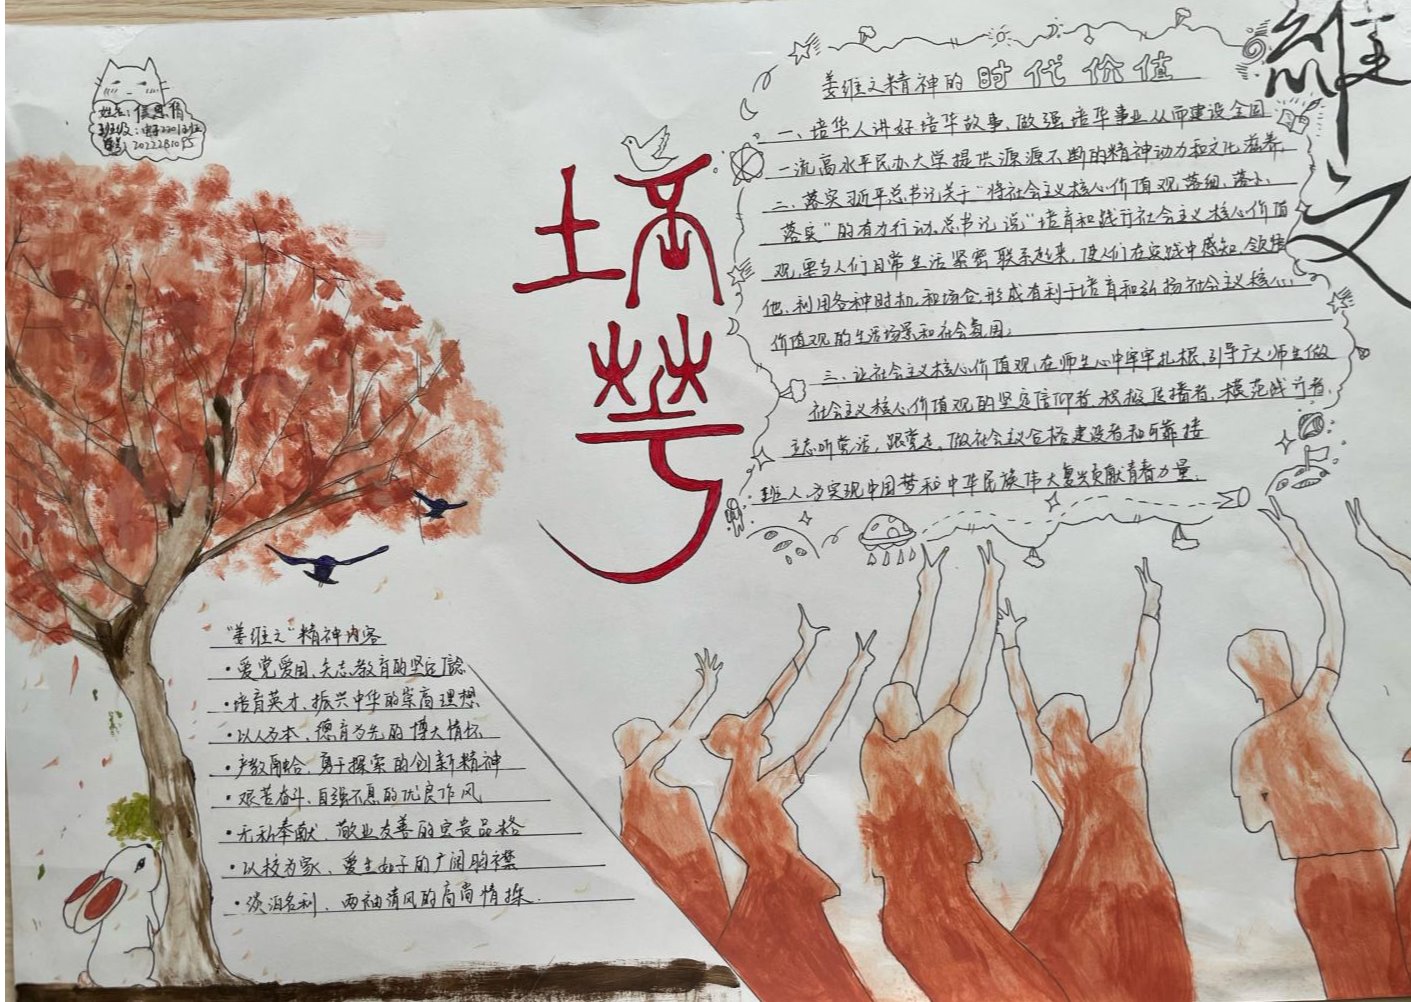 姓名:
班级:电子2201班
培
华
维
之
姜维之精神的时代价值
一、培华人讲好培华故事、做强培华事业,从而建设全国
一流高水平民办大学提供源源不断的精神动力和文化滋养.
二、落实习近平总书记关于“将社会主义核心价值观落细、落小、
落实”的有力行动.总书记说“培育和践行社会主义核心价值
观,要与人们日常生活紧密联系起来,使人们在实践中感知、领悟
他、利用各种时机和场合,形成有利于培育和弘扬社会主义核心
价值观的生活场景和社会氛围;
三、让社会主义核心价值观在师生心中牢牢扎根,引导广大师生做
社会主义核心价值观的坚定信仰者、积极传播者、模范践行者,
立志听党话,跟党走,做社会主义合格建设者和可靠接
班人,为实现中国梦和中华民族伟大复兴贡献青春力量.
“姜维之”精神内容
·爱党爱国、矢志教育的坚定信念
·培育英才、振兴中华的崇高理想
·以人为本、德育为先的博大情怀
·产教融合、勇于探索的创新精神
·艰苦奋斗、自强不息的优良作风
·无私奉献、敬业友善的宝贵品格
·以校为家、爱生如子的广阔胸襟
·淡泊名利、两袖清风的高尚情操.